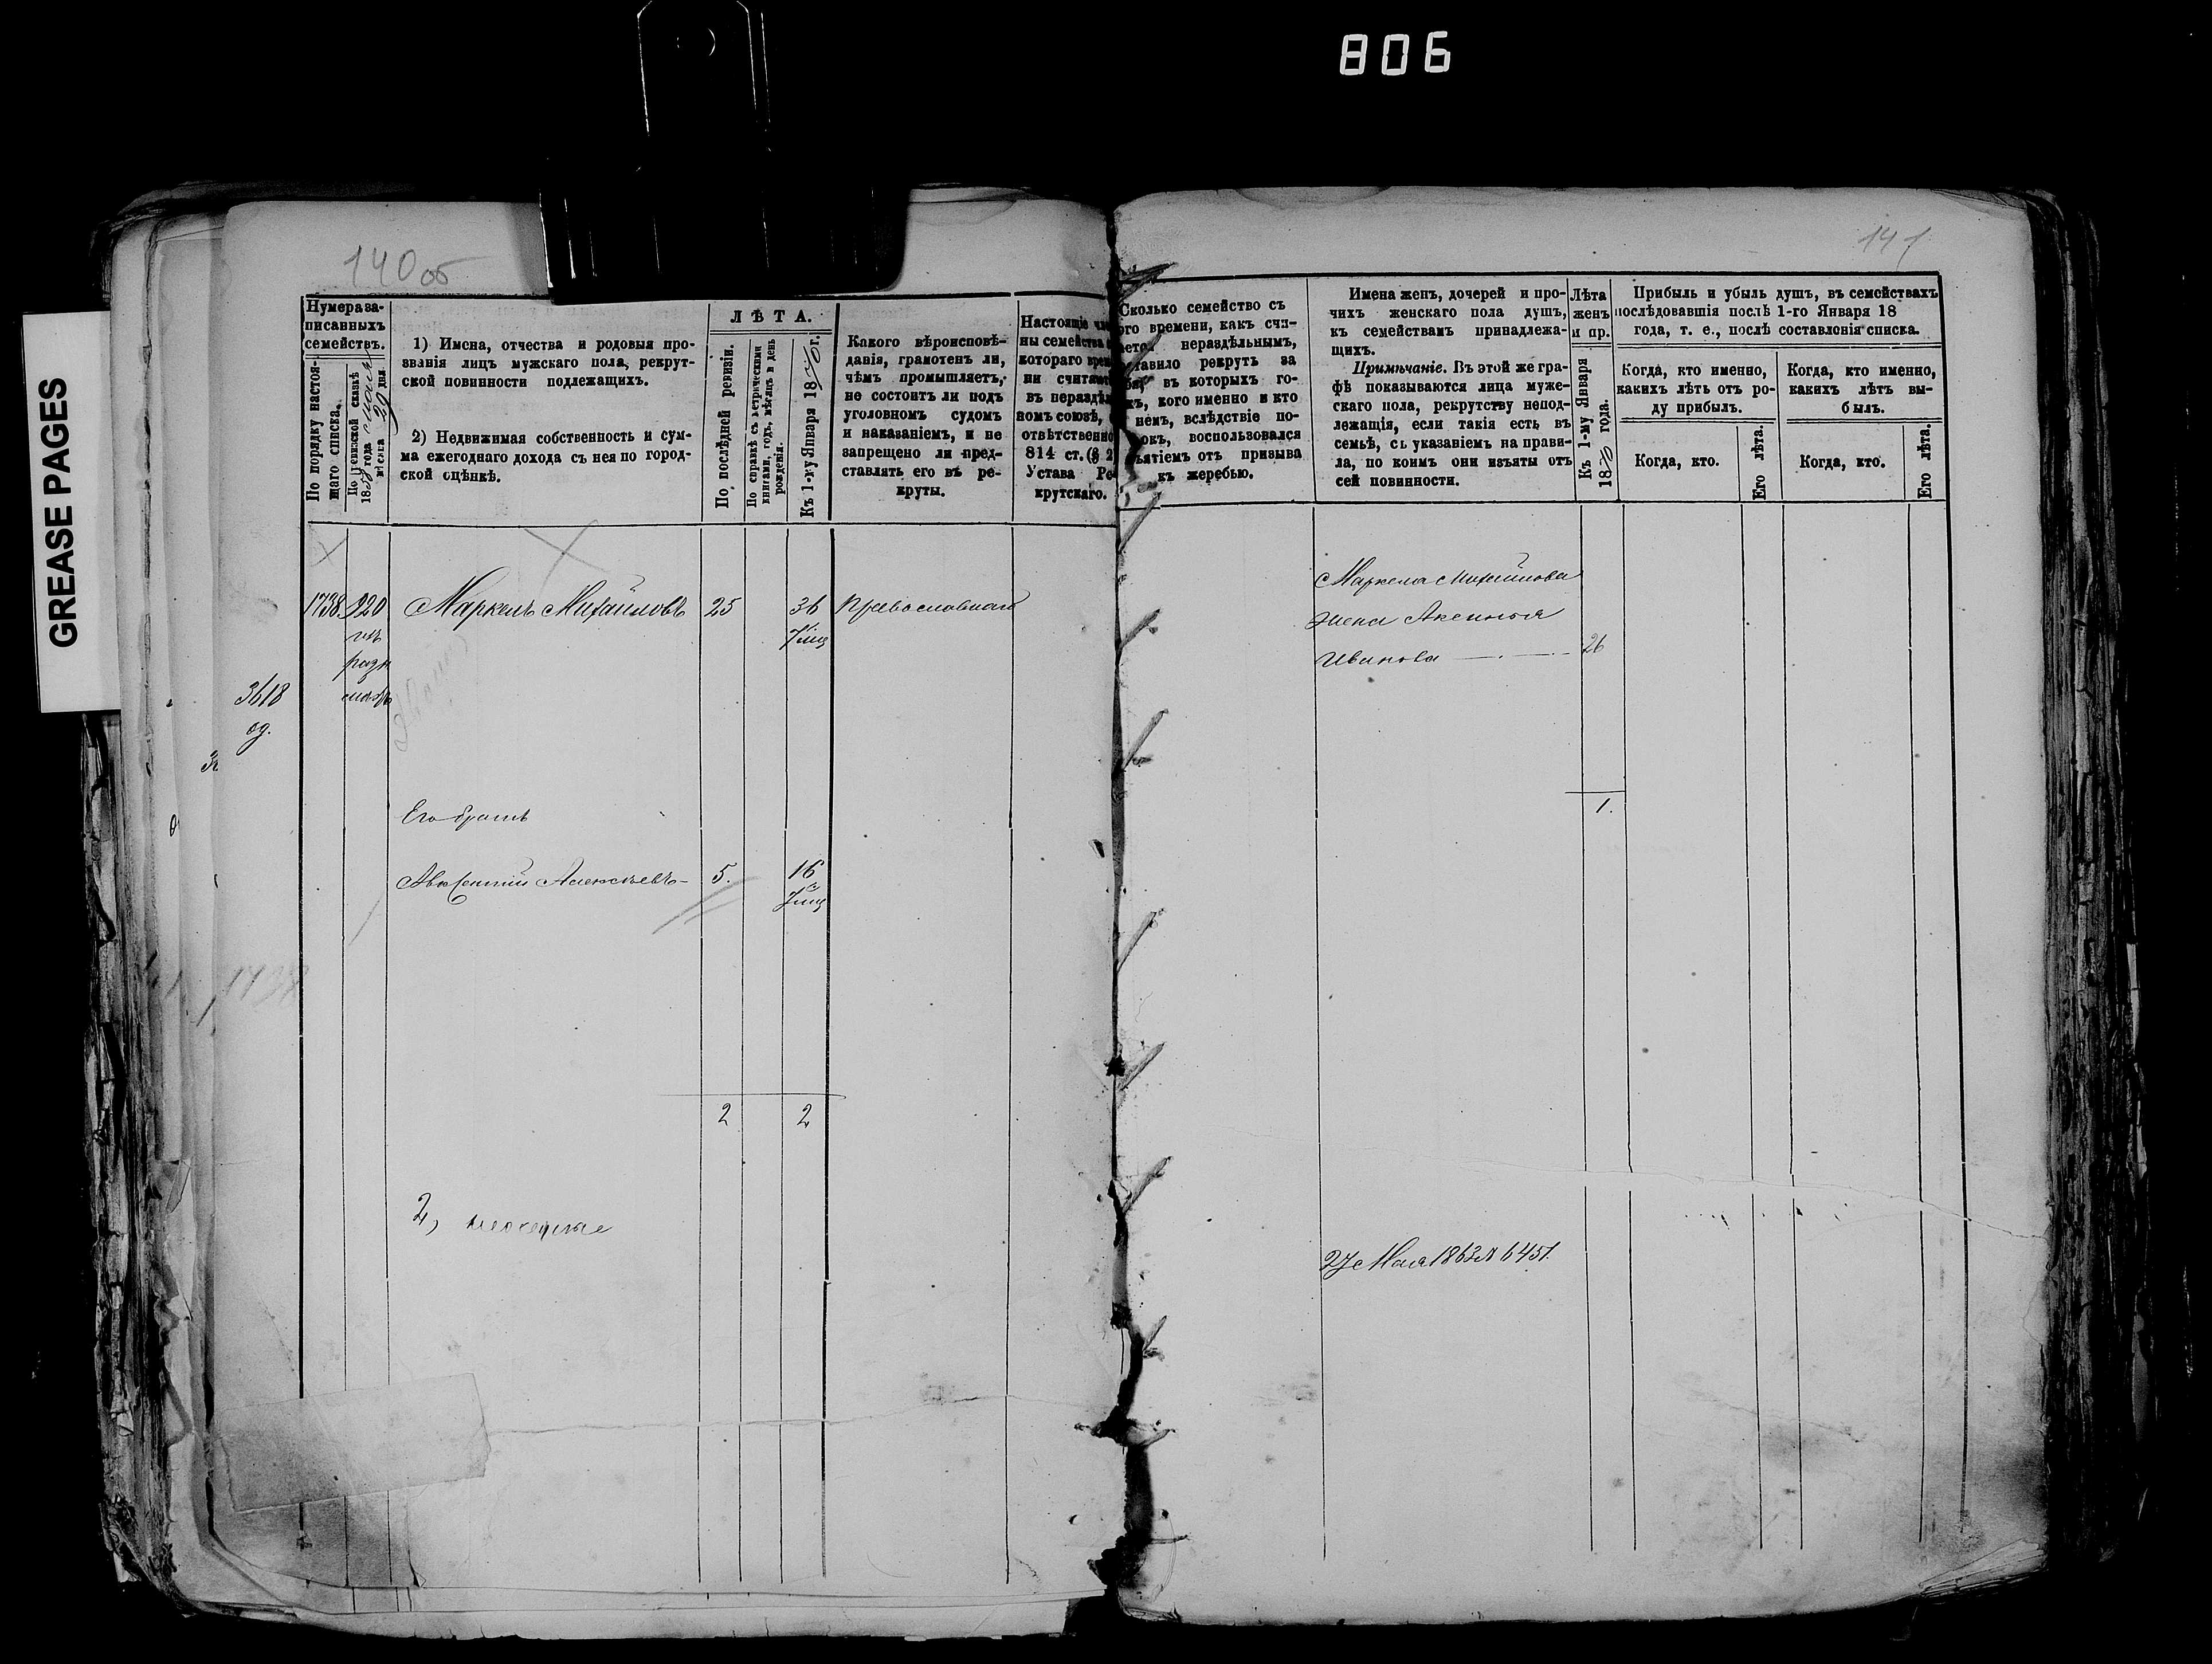 806
GREASE PAGES
140 об
141
Нумера за-
писанныхъ
семействъ.
По порядку настоя-
щаго списка.
По ревизской сказкѣ
1858 года
мѣсяца 20 дня
1) Имена, отчества и родовыя про-
званія лицъ мужскаго пола, рекрут-
ской повинности подлежащихъ.
2) Недвижимая собственность и сум-
ма ежегоднаго дохода съ нея по город-
ской оцѣнкѣ.
ЛѢТА.
По послѣдней ревизіи.
По справкѣ съ метрическими
книгами, годъ, мѣсяцъ и день
рожденія.
Къ 1-му Января 1870 г.
Какого вѣроисповѣ-
данія, грамотенъ ли,
чѣмъ промышляетъ,
не состоитъ ли подъ
уголовномъ судомъ
и наказаніемъ, и не
запрещено ли пред-
ставлять его въ ре-
круты.
Настоящіе
ны семейства
котораго
ни считают
въ нераздѣл
номъ союзѣ,
отвѣтственно
814 ст. (§ 2
Устава Ре-
крутскаго.
Сколько семейство съ
ого времени, какъ счи-
нераздѣльнымъ,
тавило рекрутъ за
въ которыхъ го-
кого именно и кто
немъ, вслѣдствіе по-
воспользовался
ъятіемъ отъ призыва
къ жеребью.
Имена женъ, дочерей и про-
чихъ женскаго пола душъ,
къ семействамъ принадлежа-
щихъ.
Примѣчаніе. Въ этой же гра-
фѣ показываются лица муже-
скаго пола, рекрутству непод-
лежащія, если такія есть въ
семьѣ, съ указаніемъ на прави-
ла, по коимъ они изъяты отъ
сей повинности.
Лѣта
женъ
и пр.
Къ 1-му Января
1870 года.
Прибыль и убыль душъ, въ семействахъ
послѣдовавшія послѣ 1-го Января 18
года, т. е., послѣ составленія списка.
Когда, кто именно,
какихъ лѣтъ отъ ро-
ду прибылъ.
Когда, кто именно,
какихъ лѣтъ вы-
былъ.
Когда, кто.
Его лѣта.
Когда, кто.
Его лѣта.
1738 220 Маркелъ Михайловъ 25 36 Православнаго
7 мц
3618
од.
Его братъ
Авксентій Алексѣевъ 5. 16
7 мц
2 2
2,
Маркела Михайлова
жена Аксинья
Иванова 26
1.
27 Мая 1863 № 6451.